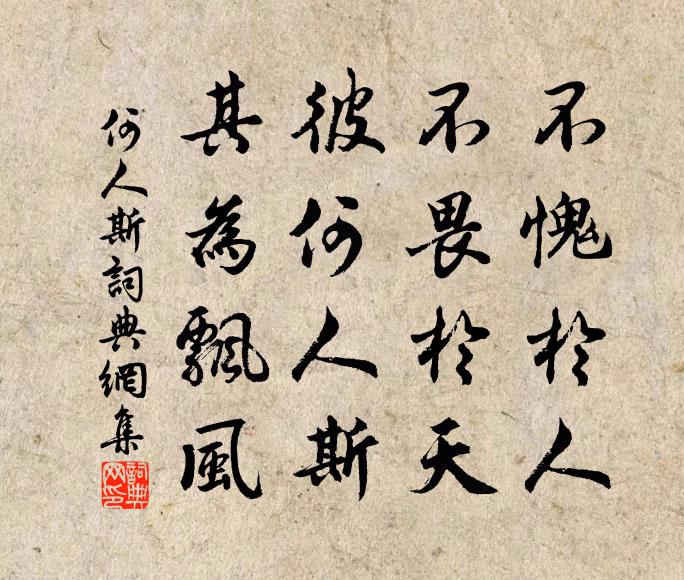 不愧於人
不畏於天
彼何人斯
其為飄風
何人斯詞典網集
詞典網印